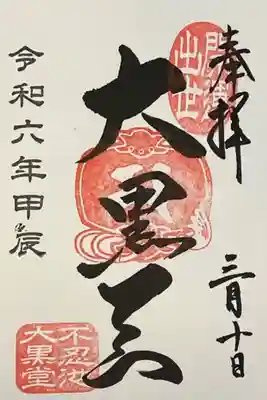 奉拝
三月十日
開運
出世
大黒天
令和六年甲辰
不忍池
大黒堂